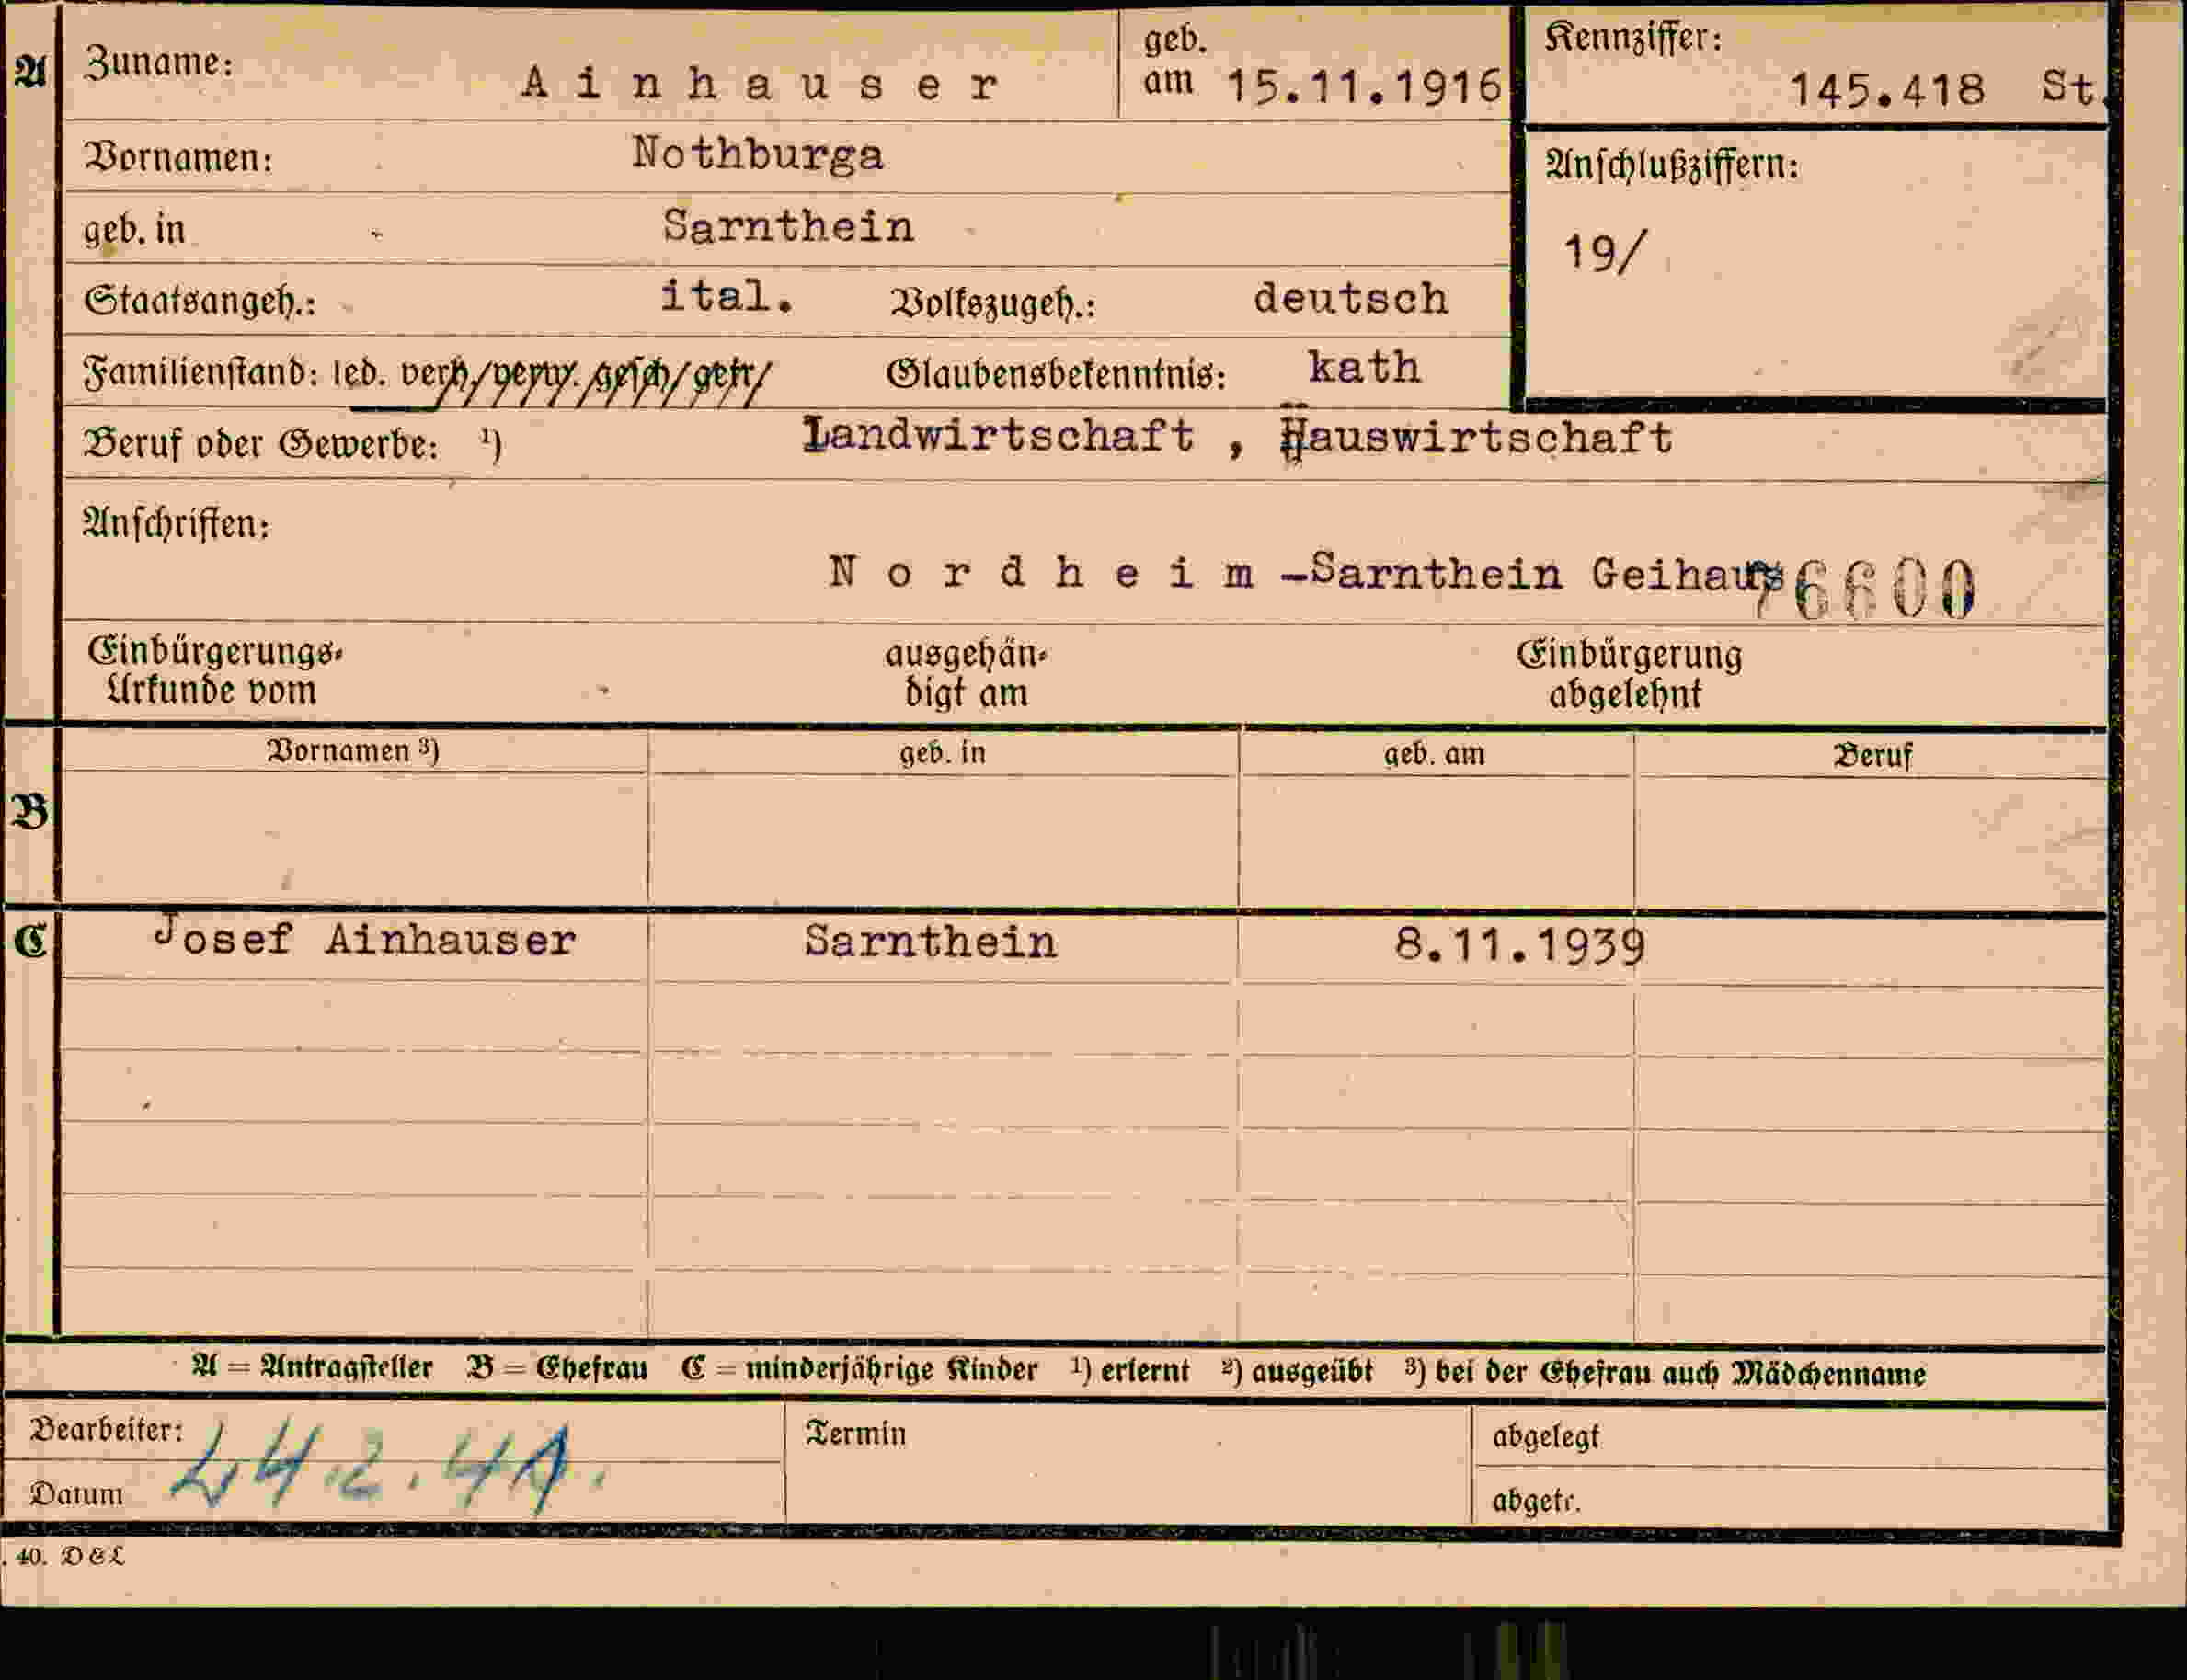 A Zuname: Ainhauser geb. am 15.11.1916 Kennziffer: 145.418 St.
Vornamen: Nothburga Anschlußziffern:
geb. in Sarnthein 19/
Staatsangeh.: ital. Volkszugeh.: deutsch
Familienstand: led. verh/verw. gesch/getr/ Glaubensbekenntnis: kath
Beruf oder Gewerbe: ¹) Landwirtschaft , Hauswirtschaft
Anschriften:
Nordheim-Sarnthein Geihaus 6600
Einbürgerungs- ausgehän- Einbürgerung
Urkunde vom digt am abgelehnt
Vornamen ³) geb. in geb. am Beruf
B
C Josef Ainhauser Sarnthein 8.11.1939
A = Antragsteller B = Ehefrau C = minderjährige Kinder ¹) erlernt ²) ausgeübt ³) bei der Ehefrau auch Mädchenname
Bearbeiter: Termin abgelegt
Datum abgetr.
. 40. DEL